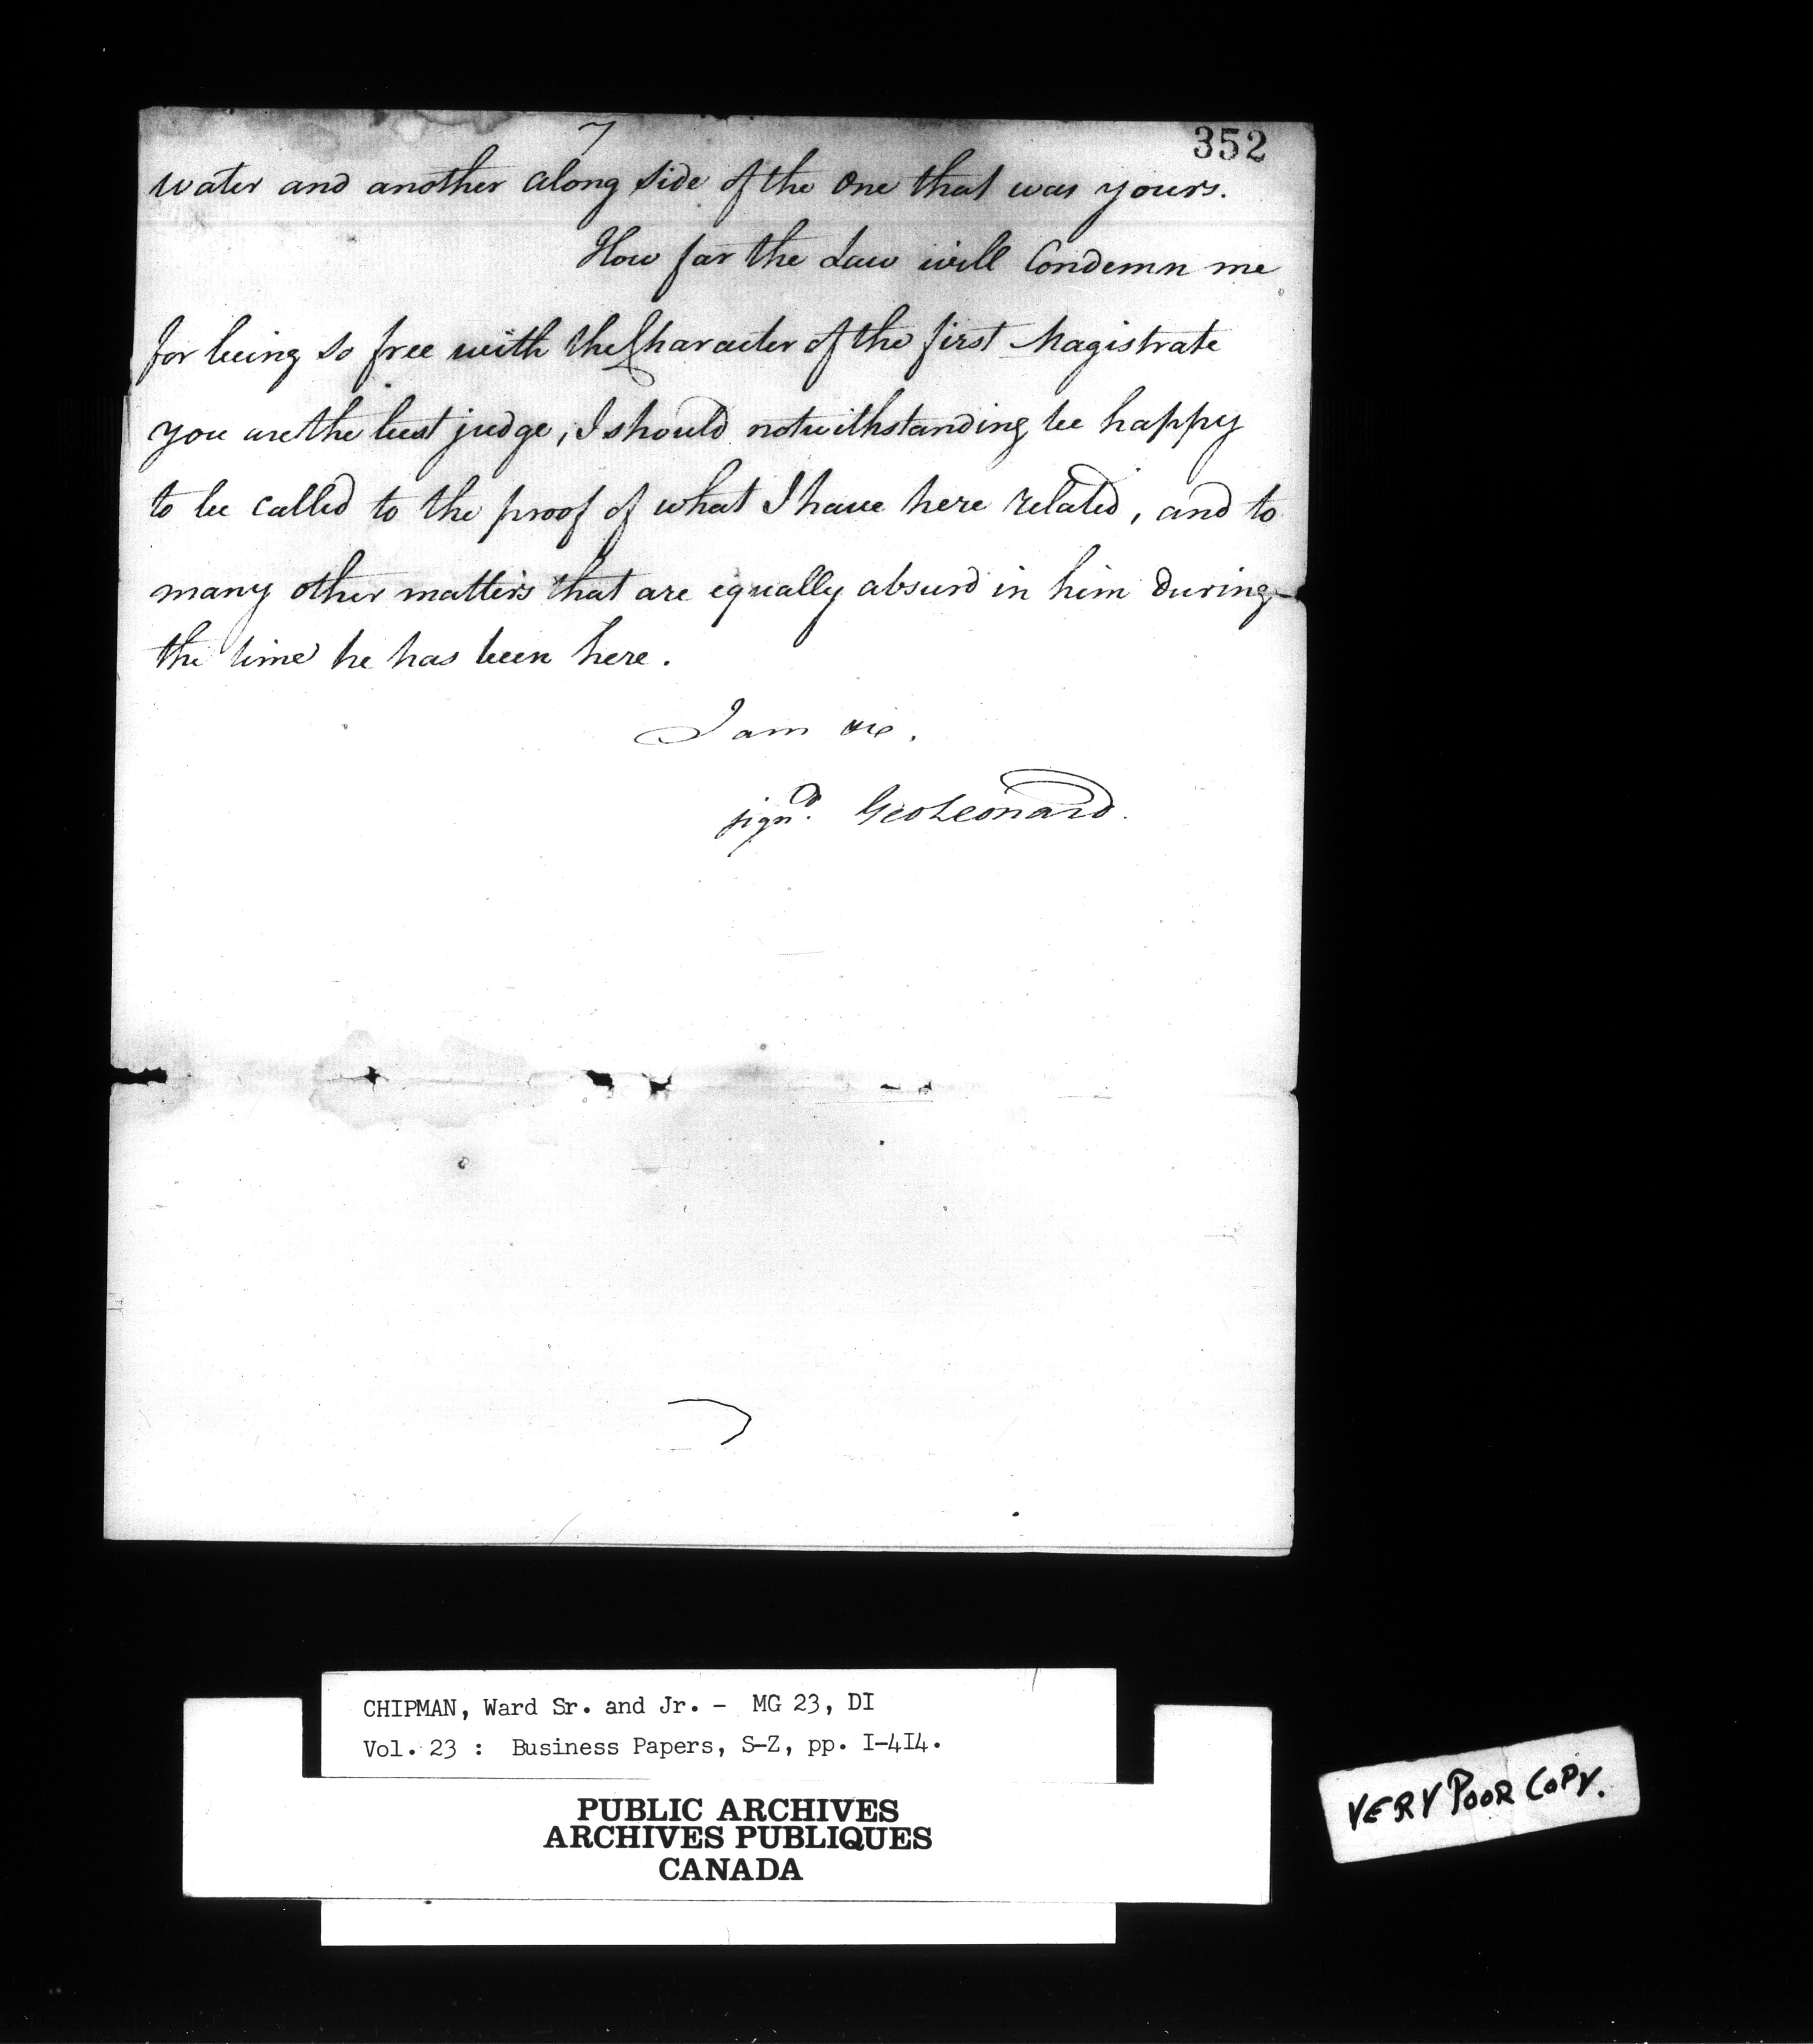 7
352
water and another along side of the one that was yours.
How far the Law will Condemn me
for being so free with the Character of the first Magistrate
you are the best judge, I should notwithstanding be happy
to be called to the proof of what I have here related, and to
many other matters that are equally absurd in him during
the time he has been here.
I am &c.
signd. Geo Leonard.
CHIPMAN, Ward Sr. and Jr. - MG 23, DI
Vol. 23 : Business Papers, S-Z, pp. I-4I4.
PUBLIC ARCHIVES
ARCHIVES PUBLIQUES
CANADA
VERY POOR COPY.